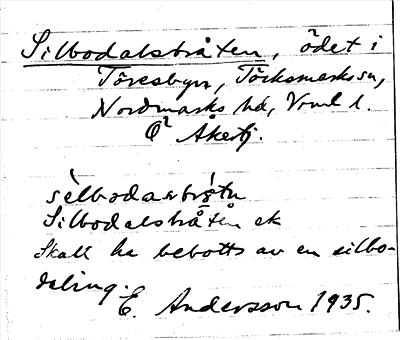 Silbodalsbråten, ödet i
Töresbyn, Töcksmarks sn,
Nordmarks hd, Vrml l.
Åkerbj.
Silbodalsbråten ek
Skall ha bebotts av en silbo-
daling.
E. Andersson 1935.